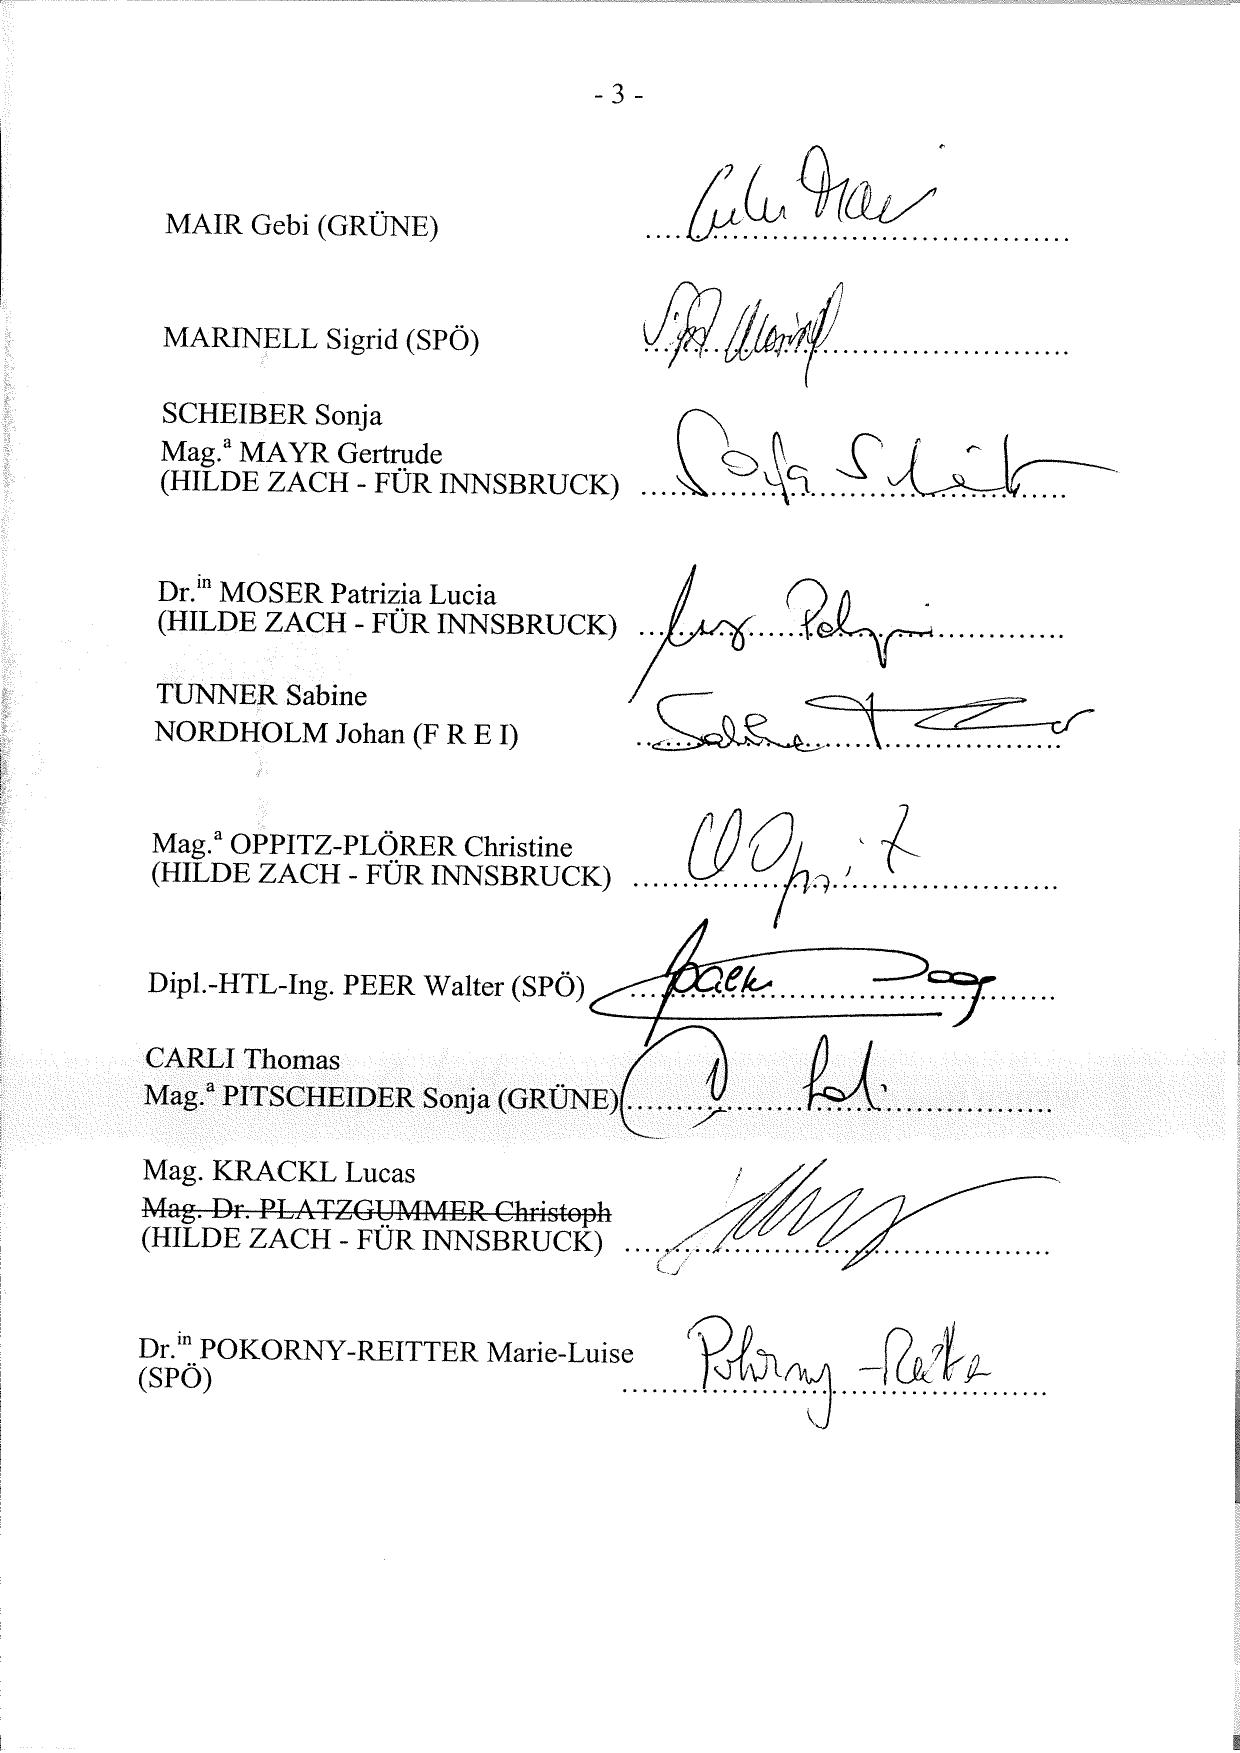 - 3 -
MAIR Gebi (GRÜNE)
MARINELL Sigrid (SPÖ)
SCHEIBER Sonja
Mag.ª MAYR Gertrude
(HILDE ZACH - FÜR INNSBRUCK)
Sonja
Dr.in MOSER Patrizia Lucia
(HILDE ZACH - FÜR INNSBRUCK)
TUNNER Sabine
NORDHOLM Johan (F R E I)
Sabine
Mag.ª OPPITZ-PLÖRER Christine
(HILDE ZACH - FÜR INNSBRUCK)
Dipl.-HTL-Ing. PEER Walter (SPÖ)
CARLI Thomas
Mag.ª PITSCHEIDER Sonja (GRÜNE)
Mag. KRACKL Lucas
Mag. Dr. PLATZGUMMER Christoph
(HILDE ZACH - FÜR INNSBRUCK)
Dr.in POKORNY-REITTER Marie-Luise
(SPÖ)
Pokorny-Reitter